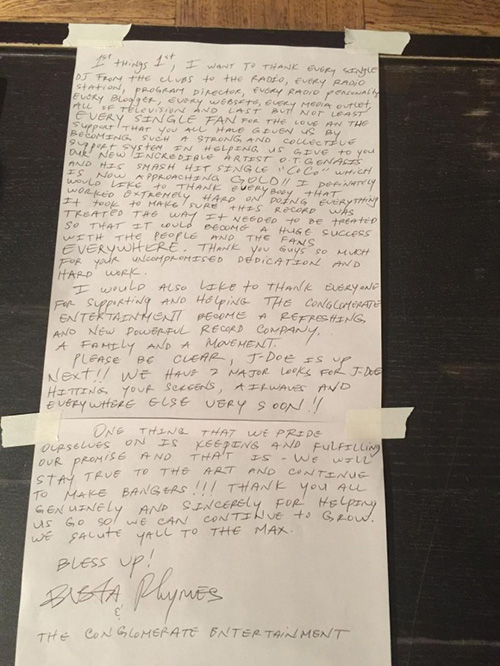 1st things 1st, I WANT TO THANK EVERY SINGLE
DJ FROM THE CLUBS TO THE RADIO, EVERY RADIO
STATION, PROGRAM DIRECTOR, EVERY RADIO PERSONALITY
EVERY BLOGGER, EVERY WEBSITE, EVERY MEDIA OUTLET,
ALL OF TELEVISION AND LAST BUT NOT LEAST
EVERY SINGLE FAN FOR THE LOVE AN THE
SUPPORT THAT YOU ALL HAVE GIVEN US BY
BECOMING SUCH A STRONG AND COLLECTIVE
SUPPORT SYSTEM IN HELPING US GIVE TO YOU
OUR NEW INCREDIBLE ARTIST O.T. GENASIS
AND HIS SMASH HIT SINGLE "COCO" WHICH
IS NOW APPROACHING GOLD!! I DEFINATELY
WOULD LIKE TO THANK EVERYBODY THAT
WORKED EXTREMELY HARD ON DOING EVERYTHING
IT TOOK TO MAKE SURE THIS RECORD WAS
TREATED THE WAY IT NEEDED TO BE TREATED
SO THAT IT COULD BECOME A HUGE SUCCESS
WITH THE PEOPLE AND THE FANS
EVERYWHERE. THANK YOU GUYS SO MUCH
FOR YOUR UNCOMPROMISED DEDICATION AND
HARD WORK.
I WOULD ALSO LIKE TO THANK EVERYONE
FOR SUPPORTING AND HELPING THE CONGLOMERATE
ENTERTAINMENT BECOME A REFRESHING
AND NEW POWERFUL RECORD COMPANY,
A FAMILY AND A MOVEMENT.
PLEASE BE CLEAR, J-DOE IS UP
NEXT!! WE HAVE 2 MAJOR LOOKS FOR J-DOE
HITTING YOUR SCREENS, AIRWAVES AND
EVERYWHERE ELSE VERY SOON!!
ONE THING THAT WE PRIDE
OURSELVES ON IS KEEPING AND FULFILLING
OUR PROMISE AND THAT IS - WE WILL
STAY TRUE TO THE ART AND CONTINUE
TO MAKE BANGERS!!! THANK YOU ALL
GENUINELY AND SINCERELY FOR HELPING
US GO SO WE CAN CONTINUE TO GROW.
WE SALUTE YALL TO THE MAX.
BLESS UP!
BUSTA RHYMES
&
THE CONGLOMERATE ENTERTAINMENT